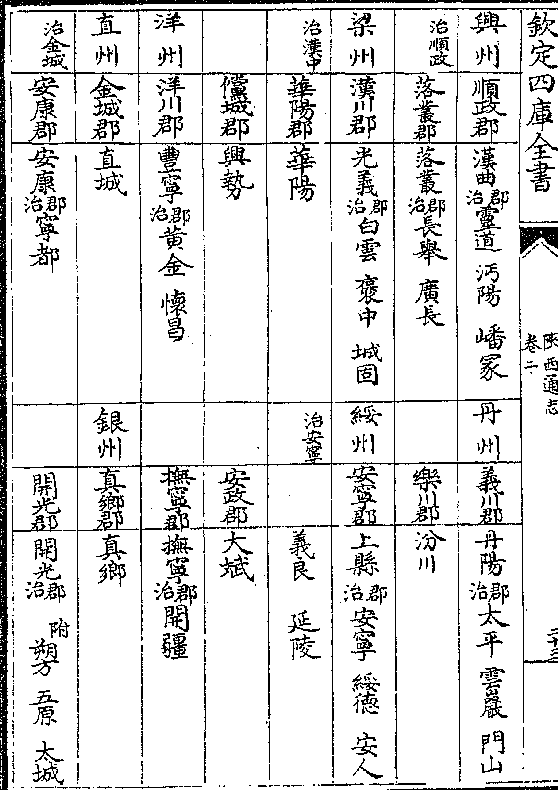 欽定四庫全書
陜西通志
卷二
興州 順政郡 漢曲郡治 靈道 沔陽 嶓冢 丹州 義川郡 丹陽郡治 太平 雲巖 門山
治順政 落叢郡 落叢郡治 長舉 廣長 樂川郡 汾川
梁州 漢川郡 光義郡治 白雲 褒中 城固 綏州 安寧郡 上縣郡治 安寧 綏德 安人
治漢中 華陽郡 華陽 治安寧 義良 延陵
儻城郡 興勢 安政郡 大斌
洋州 洋川郡 豐寧郡治 黃金 懷昌 撫寧郡 撫寧郡治 開疆
直州 金城郡 直城 銀州 真鄉郡 真鄉
治金城 安康郡 安康郡治 寧都 開光郡 開光郡治 附 朔方 五原 大城